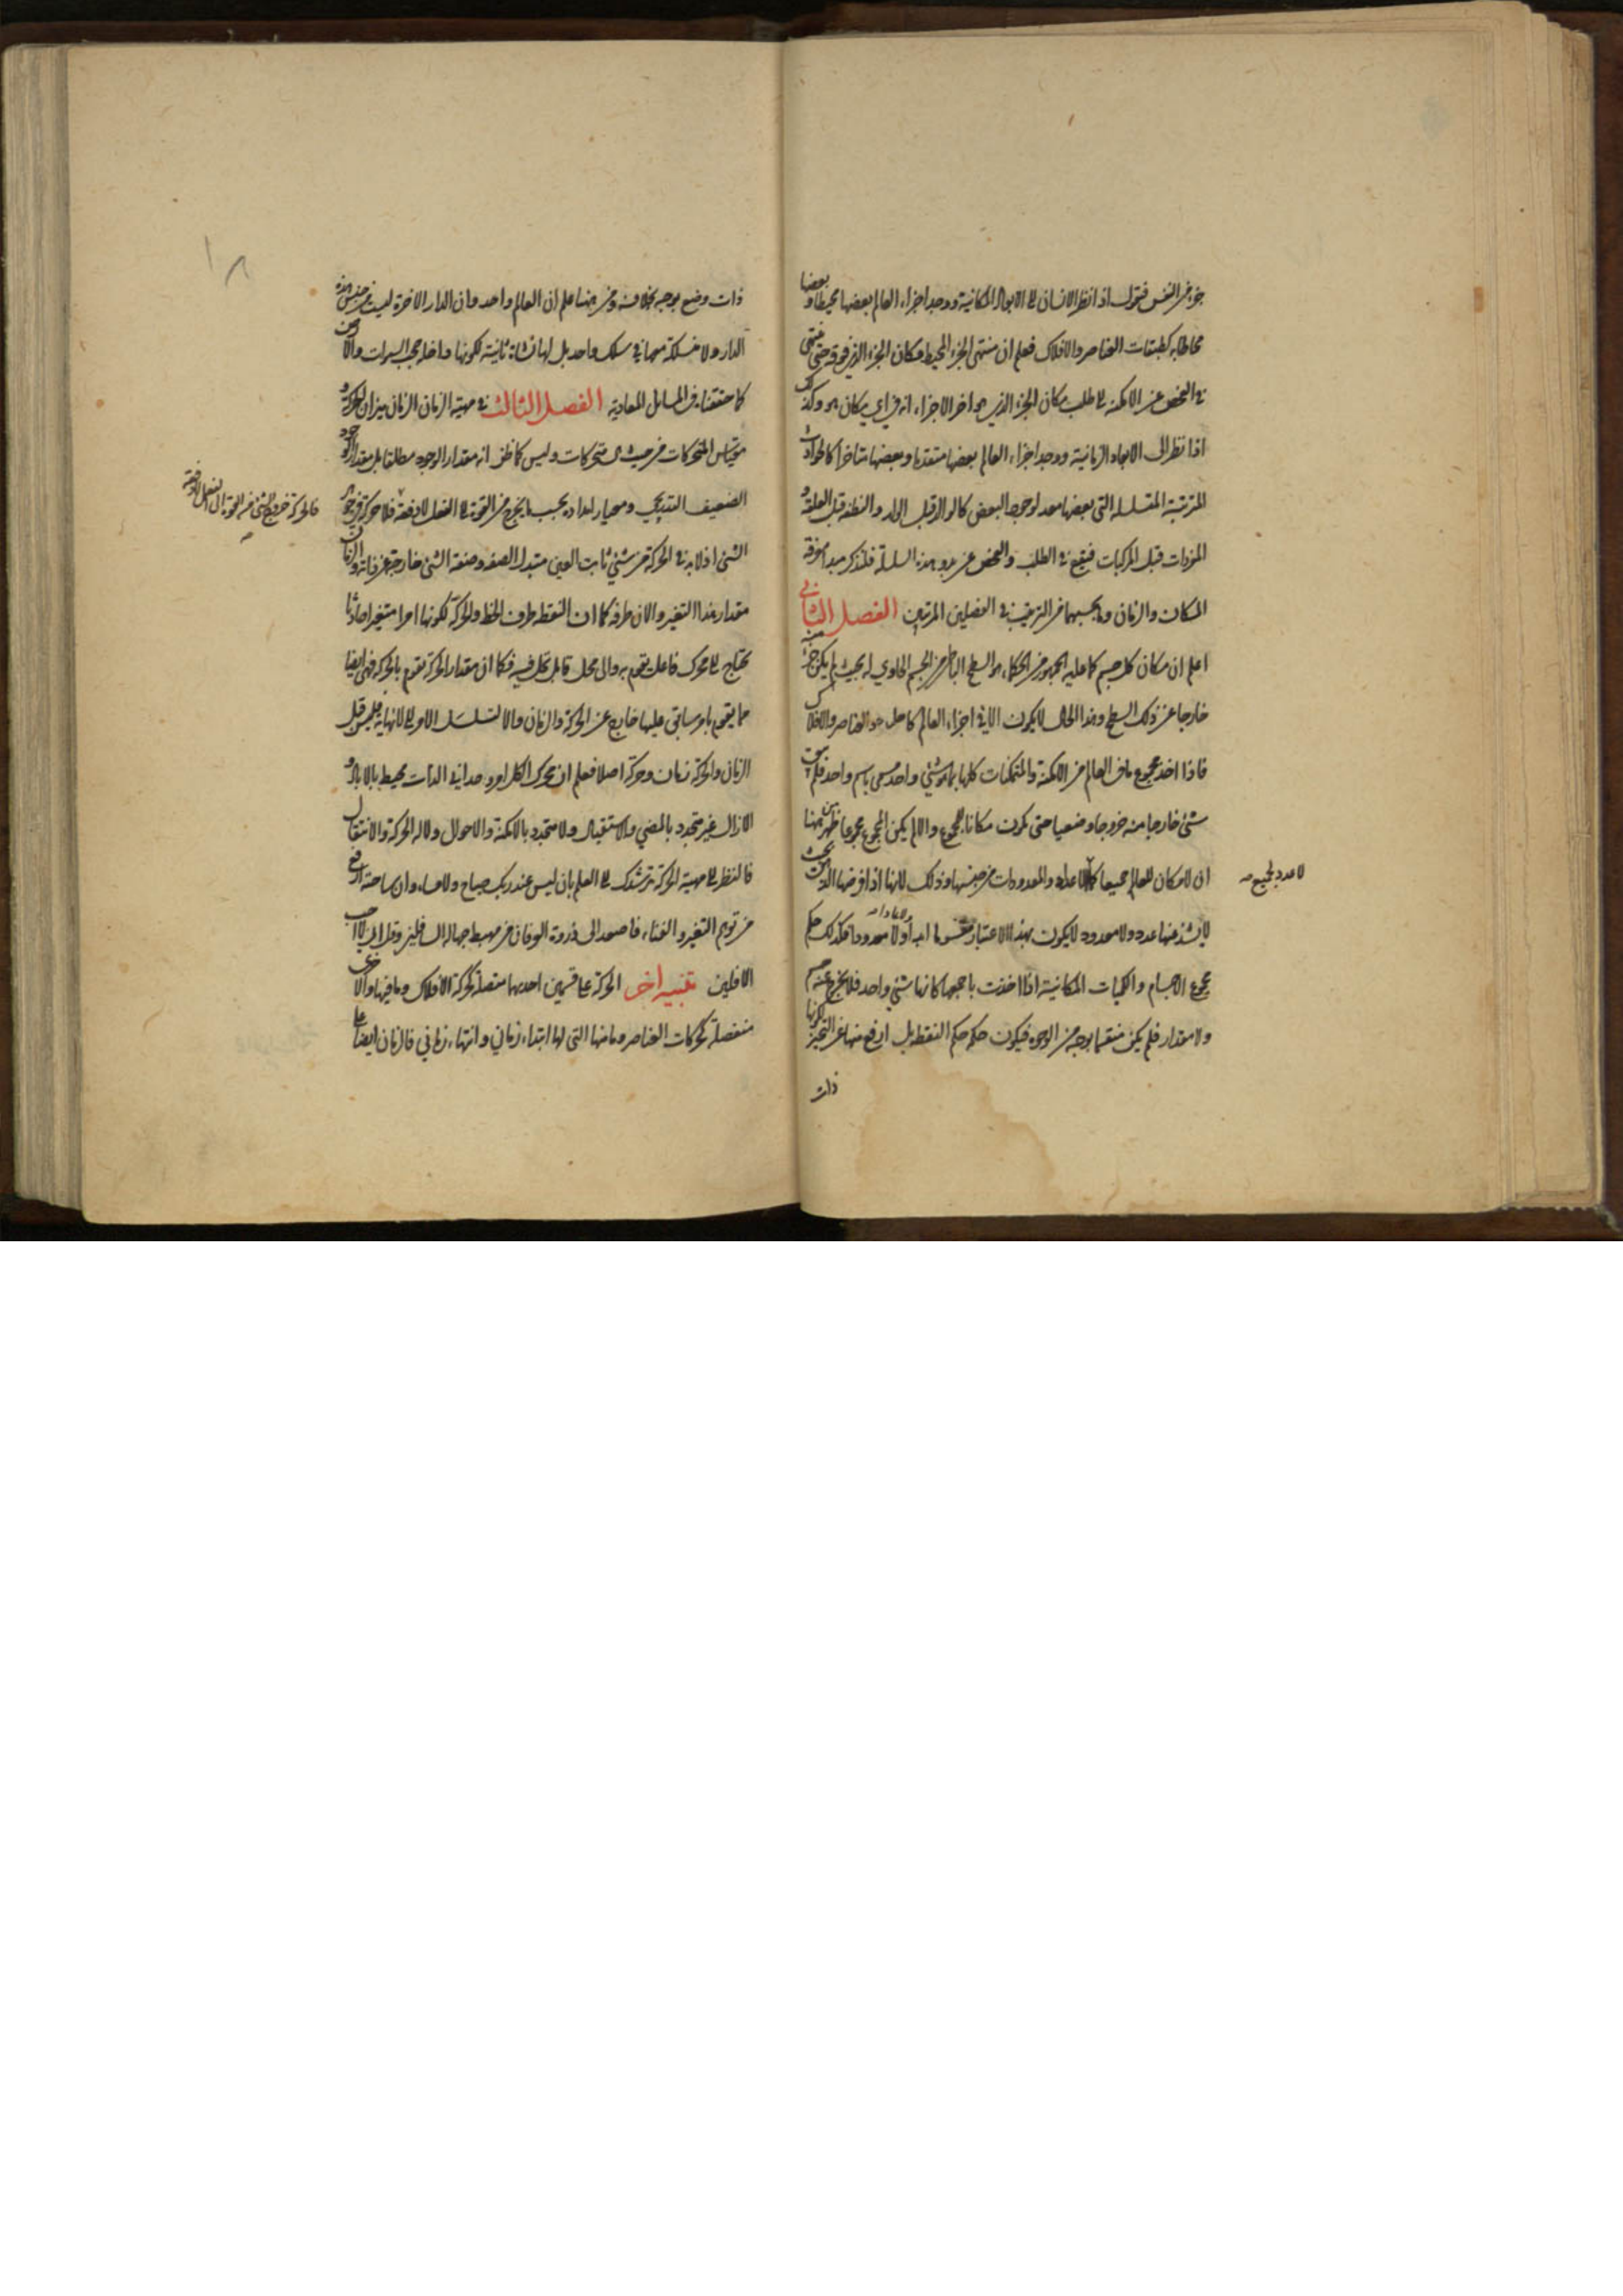 جزء من النفس فنقول اذا نظر الانسان الى الابعاد المكانية ووجد اجزاء العالم بعضها محيطا وبعضها
محاطا به كطبقات العناصر والافلاك فعلم ان منتهى الجزء المحيط مكان الجزء الذى فوقه حتى ينتهى
فى الفحص عن الامكنة الى طلب مكان الجزء الذي هو اخر الاجزاء انه فى اي مكان هو وكذلك
اذا نظر الى الابعاد الزمانية ووجد اجزاء العالم بعضها متقدما وبعضها متاخرا كالحوادث
المترتبة المتسلسلة التى بعضها معد لوجود البعض كالوالد قبل الولد والنطفة قبل العلقة و
المفردات قبل المركبات فيقع فى الطلب والفحص عن بدو هذه السلسلة فلنذكر مبدا معرفة
المكان والزمان وما بحسبهما من الترغيب فى الفصلين المرتبين الفصل الثانى
اعلم ان مكان كل جسم كما عليه الجمهور من الحكماء هو السطح الباطن من الجسم الحاوي له بحيث لم يكن جزء منه
خارجا عن ذلك السطح وهذا الحال لا يكون الا فى اجزاء العالم كاحاد العناصر والافلاك
فاذا اخذ مجموع ما فى العالم من الامكنة والمتمكنات كلها بما هو شئ واحد مسمى باسم واحد فلم يبق
شئ خارجا منه خروجا وضعيا حتى يكون مكانا للمجموع والا لم يكن المجموع مجموعا فظهر من ههنا
ان لا مكان للعالم جميعا كما لا عدد لجميع الاعداد والمعدودات من جنسها وذلك لانها اذا فرضها الذهن بحيث
لا يشذ منها عدد ولا معدود لا يكون بهذا الاعتبار من جنسها ابدا ولا عادا ولا معدودا فكذلك حكم
مجموع الاجسام والكليات المكانية اذا اخذت باجمعها كانها شئ واحد فلا يخرج عنه جسم
ولا مقدار فلم يكن منقسما بوجه من الوجوه فيكون حكمه حكم النقطة بل ارفع منها عن التحيز لكونها
ذات
لا عدد لجميع
ذات وضع بوجه بخلافه ومن ههنا علم ان العالم واحد وان الدار الاخرة ليست من جنس هذه
الدار ولا منسلكة معها فى سلك واحد بل لها نشاة ثانية لكونها داخلة حجب السموات والارض
كما حققناه فى المسائل المعادية الفصل الثالث فى مهية الزمان الزمان ميزان الحركة و
مقياس المتحركات من حيث هى متحركات وليس كما ظن انه مقدار الوجود مطلقا بل مقدار الوجود
الضعيف التدريجي ومعيار امداده بحسب ما يخرج من القوة الى الفعل لا دفعة فلا حركة فى جوهر
الشئ اذ لا بد فى الحركة من شئ ثابت العين متبدل الصفة وصفة الشئ خارجة عن ذاته والزمان
مقدار هذا التغير والان طرفه كما ان النقطة طرف الخط والحركة لكونها امرا متغيرا حادثا
يحتاج الى محرك فاعل يقوم به والى محل قابل تحل فيه فكما ان مقدار الحركة يقوم بالحركة فهى ايضا
مما يقوم بامر سابق عليها خارج عن الحركة والزمان والا لتسلسل الامر الى لا نهاية فليس قبل
الزمان والحركة زمان وحركة اصلا فعلم ان محرك الكل امر وحدانى الذات محيط بالاباد و
الازال غير متجدد بالمضي والاستقبال ولا متجدد بالامكنة والاحوال ولا له الحركة والانتقال
فالنظر الى مهية الحركة يرشدك الى العلم بان ليس عند ربك صباح ولا مساء وان ساحته ارفع
من توهم التغير والفناء فاصعد الى ذروة العرفان من مهبط جهالة السافلين وقل انى لا احب
الافلين تنبيه اخر الحركة على قسمين احديهما متصلة كحركة الافلاك وما فيها والاخرى
منفصلة كحركات العناصر وما منها التى لها ابتداء زمانى وانتهاء زمانى فالزمان ايضا على
فالحركة خروج الشئ من القوة الى الفعل لا دفعة